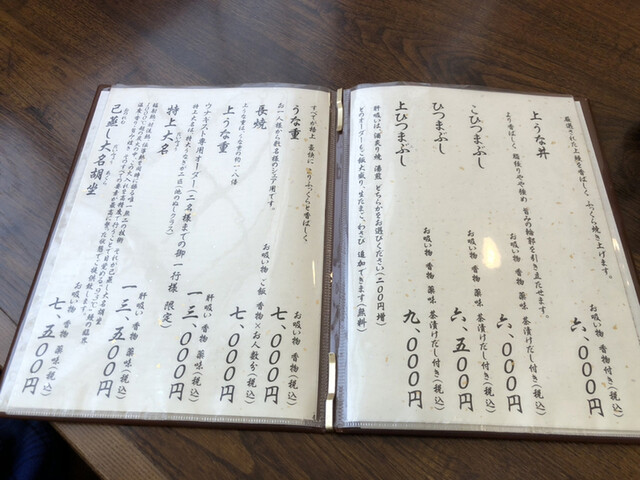 厳選された上鰻を香ばしく、ふっくら焼き上げます。
上うな丼
お吸い物 香物付き(税込)
六、〇〇〇円
より香ばしく 脂控りやや極め 旨みの輪郭を引き立たせます。
こひつまぶし
お吸い物 香物 薬味 茶漬けだし付き(税込)
六、〇〇〇円
ひつまぶし
お吸い物 香物 薬味 茶漬けだし付き(税込)
六、五〇〇円
上ひつまぶし
お吸い物 香物 薬味 茶漬けだし付き(税込)
九、〇〇〇円
肝吸い
どちらかをお選びください(二〇〇円増)
どのオーダーも、飯大盛り、生たまご、わさび 追加できます(無料)
すべてが極上 豪快に
ふっくらと香ばしく
うな重
お吸い物 香物 薬味(税込)
七、〇〇〇円
お一人様から数名様のシェア用です。
長焼
お吸い物 ご飯 香物×お人数分(税込)
七、〇〇〇円
上うな重は、うな重の約一・八倍
上うな重
肝吸い 香物 薬味(税込)
一三、〇〇〇円
ウナキスト専用オーダー(二名様までの御一行様 限定)
特上大名は、特大うなぎが二匹(池のぬしクラス)
特上大名
肝吸い 香物 薬味(税込)
一三、五〇〇円
己蒸し大名胡坐
お吸い物 香物 薬味(税込)
七、五〇〇円